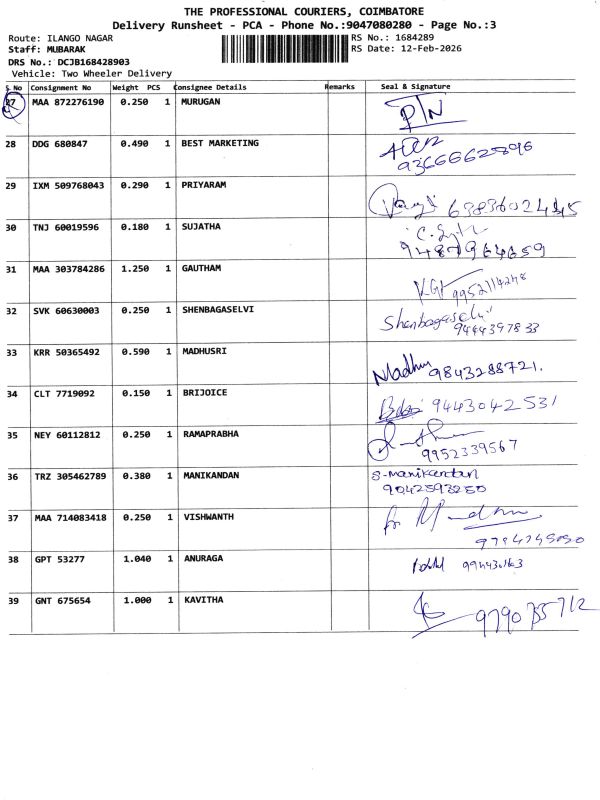 THE PROFESSIONAL COURIERS, COIMBATORE
Delivery Runsheet - PCA - Phone No.:9047080280 - Page No.:3
Route: ILANGO NAGAR RS No.: 1684289
Staff: MUBARAK RS Date: 12-Feb-2026
DRS No.: DCJB168428903
Vehicle: Two Wheeler Delivery
S No Consignment No Weight PCS Consignee Details Remarks Seal & Signature
27 MAA 872276190 0.250 1 MURUGAN
28 DDG 680847 0.490 1 BEST MARKETING
29 IXM 509768043 0.290 1 PRIYARAM
30 TNJ 60019596 0.180 1 SUJATHA
9487964659
31 MAA 303784286 1.250 1 GAUTHAM
9952114248
32 SVK 60630003 0.250 1 SHENBAGASELVI Shenbagaselvi
9444397833
33 KRR 50365492 0.590 1 MADHUSRI Madhu 9843288721.
34 CLT 7719092 0.150 1 BRIJOICE 9443042531
35 NEY 60112812 0.250 1 RAMAPRABHA
9952339567
36 TRZ 305462789 0.380 1 MANIKANDAN S-Manikandan
9042593250
37 MAA 714083418 0.250 1 VISHWANTH for
38 GPT 53277 1.040 1 ANURAGA
39 GNT 675654 1.000 1 KAVITHA